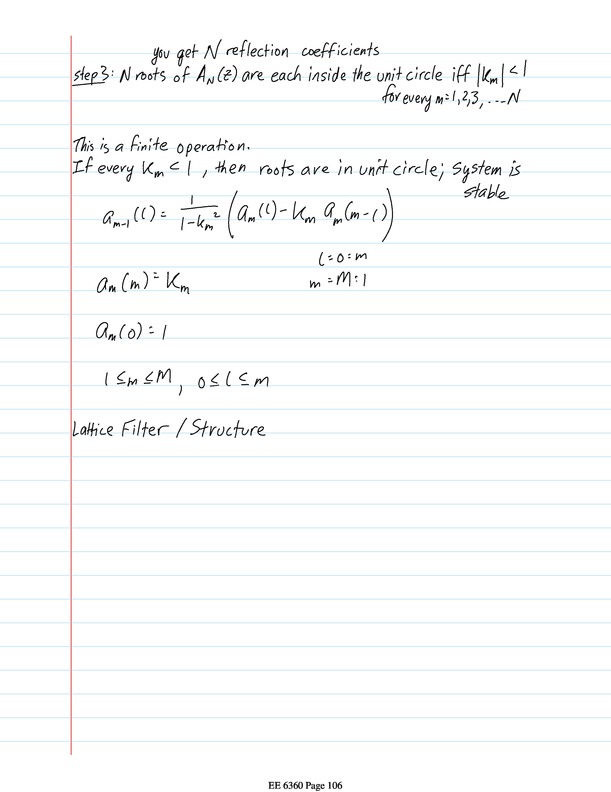 you get N reflection coefficients
step 3: N roots of A_N(z) are each inside the unit circle iff |K_m| < 1
for every m=1,2,3, ... N
This is a finite operation.
If every K_m < 1, then roots are in unit circle; system is
stable
a_{m-1}(l) = 1/(1-k_m^2) (a_m(l) - K_m a_m(m-l))
l=0:m
a_m(m) = K_m
m=M:1
a_m(0) = 1
1 ≤ m ≤ M, 0 ≤ l ≤ m
Lattice Filter / Structure
EE 6360 Page 106